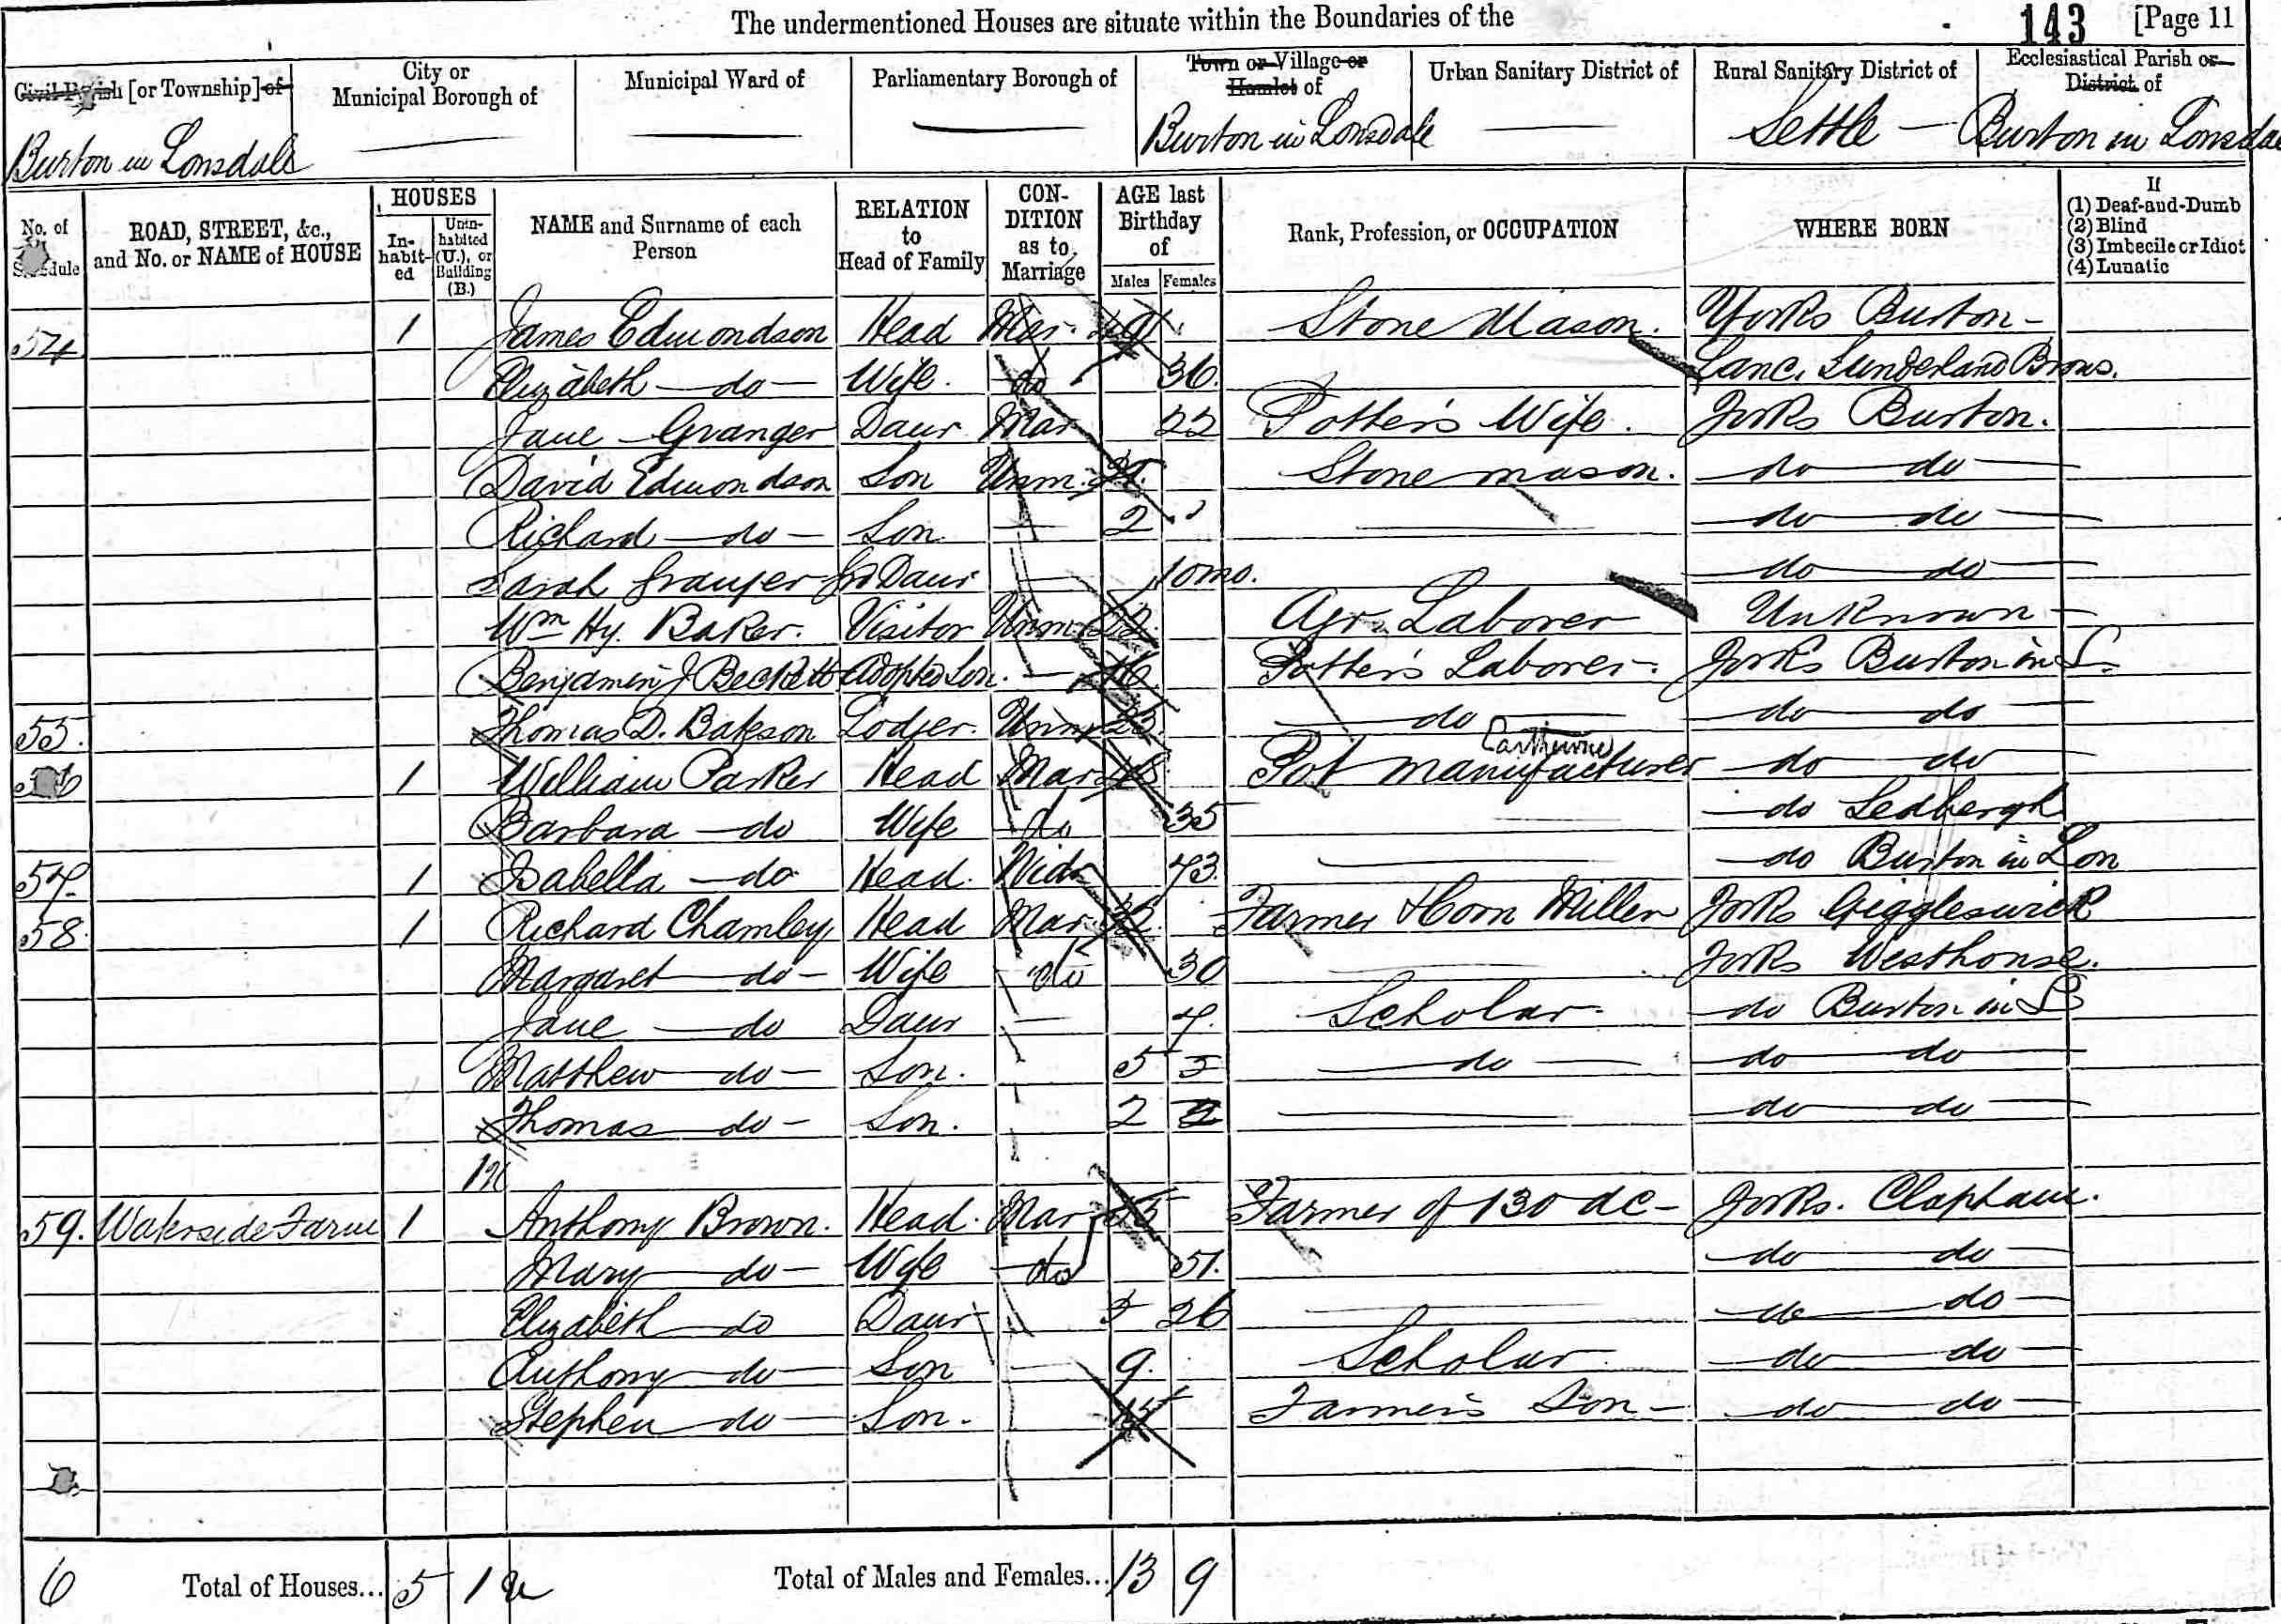 The undermentioned Houses are situate within the Boundaries of the 143 [Page 11
Civil Parish [or Township] of City or Municipal Borough of Municipal Ward of Parliamentary Borough of Town or Village or Hamlet of Urban Sanitary District of Rural Sanitary District of Ecclesiastical Parish or District of
Burton in Lonsdale — — — Burton in Lonsdale — Settle — Burton in Lonsdale
No. of Schedule ROAD, STREET, &c., and No. or NAME of HOUSE HOUSES Inhabited Uninhabited (U.), or Building (B.) NAME and Surname of each Person RELATION to Head of Family CONDITION as to Marriage AGE last Birthday of Males Females Rank, Profession, or OCCUPATION WHERE BORN If (1) Deaf-and-Dumb (2) Blind (3) Imbecile or Idiot (4) Lunatic
54 1 James Edmondson Head Mar. Stone Mason. Yorks Burton —
Elizabeth — do — Wife. do 36. Lanc. Sunderland Brows.
Jane — Granger Daur Mar 22 Potter's Wife. Yorks Burton.
David Edmondson Son Unm. Stone mason. do do —
Richard — do — Son — 2 — do do —
Sarah Granger Gr Daur — 10 mo. do do
Wm Hy. Baker. Visitor Unm Agr. Laborer Unknown —
Benjamin J Beckett Adopted Son. — 16 Potter's Laborer. Yorks Burton in L.
55. Thomas D. Bateson Lodger. Unm 23 — do — do do —
1 William Parker Head Mar Pot Earthenware manufacturer do do
Barbara — do Wife do 35 — do Sedbergh
57. 1 Isabella — do Head. Wid 73. — do Burton in Lon
58. 1 Richard Chamley Head Mar. Farmer & Corn Miller Yorks Giggleswick
Margaret — do — Wife do 30 — Yorks Westhouse.
Jane — do Daur — 7. Scholar. do Burton in L
Matthew — do — Son. 5 5 — do — do do —
Thomas — do — Son. 2 2 — do do —
1U
59. Waterside Farm 1 Anthony Brown. Head. Mar 55 Farmer of 130 Ac — Yorks. Clapham.
Mary — do — Wife do 51. do do —
Elizabeth do Daur 26 — do do —
Anthony — do — Son — 9. Scholar do do —
Stephen do — Son. Farmer's Son — do do —
6 Total of Houses... 5 1 u Total of Males and Females... 13 9